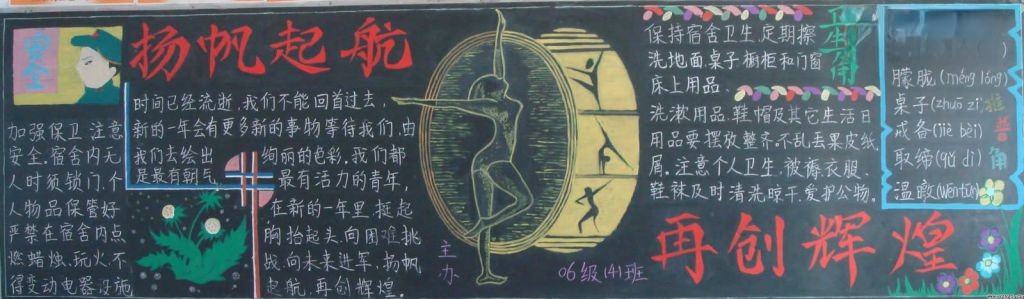 安全
加强保卫 注意
安全.宿舍内无
人时须锁门.个
人物品保管好
严禁在宿舍内点
燃蜡烛.玩火不
得变动电器设施
扬帆起航
时间已经流逝.我们不能回首过去,
新的一年会有更多新的事物等待我们.由
我们去绘出 绚丽的色彩.我们都
是最有朝气 最有活力的青年,
在新的一年里.挺起
胸抬起头.向困难挑
战.向未来进军.扬帆
起航.再创辉煌.
主办
06级(4)班
卫生角
保持宿舍卫生.定期擦
洗地面.桌子橱柜和门窗
床上用品.
洗漱用品.鞋帽及其它生活日
用品要摆放整齐.不乱丢果皮纸
屑.注意个人卫生.被褥衣服.
鞋袜及时清洗晾干.爱护公物.
再创辉煌
推普角
朦胧(méng lóng)
桌子(zhuō zi
戒备(jiè bèi)
取缔(qǔ dì)
温暾(Wēn tūn)